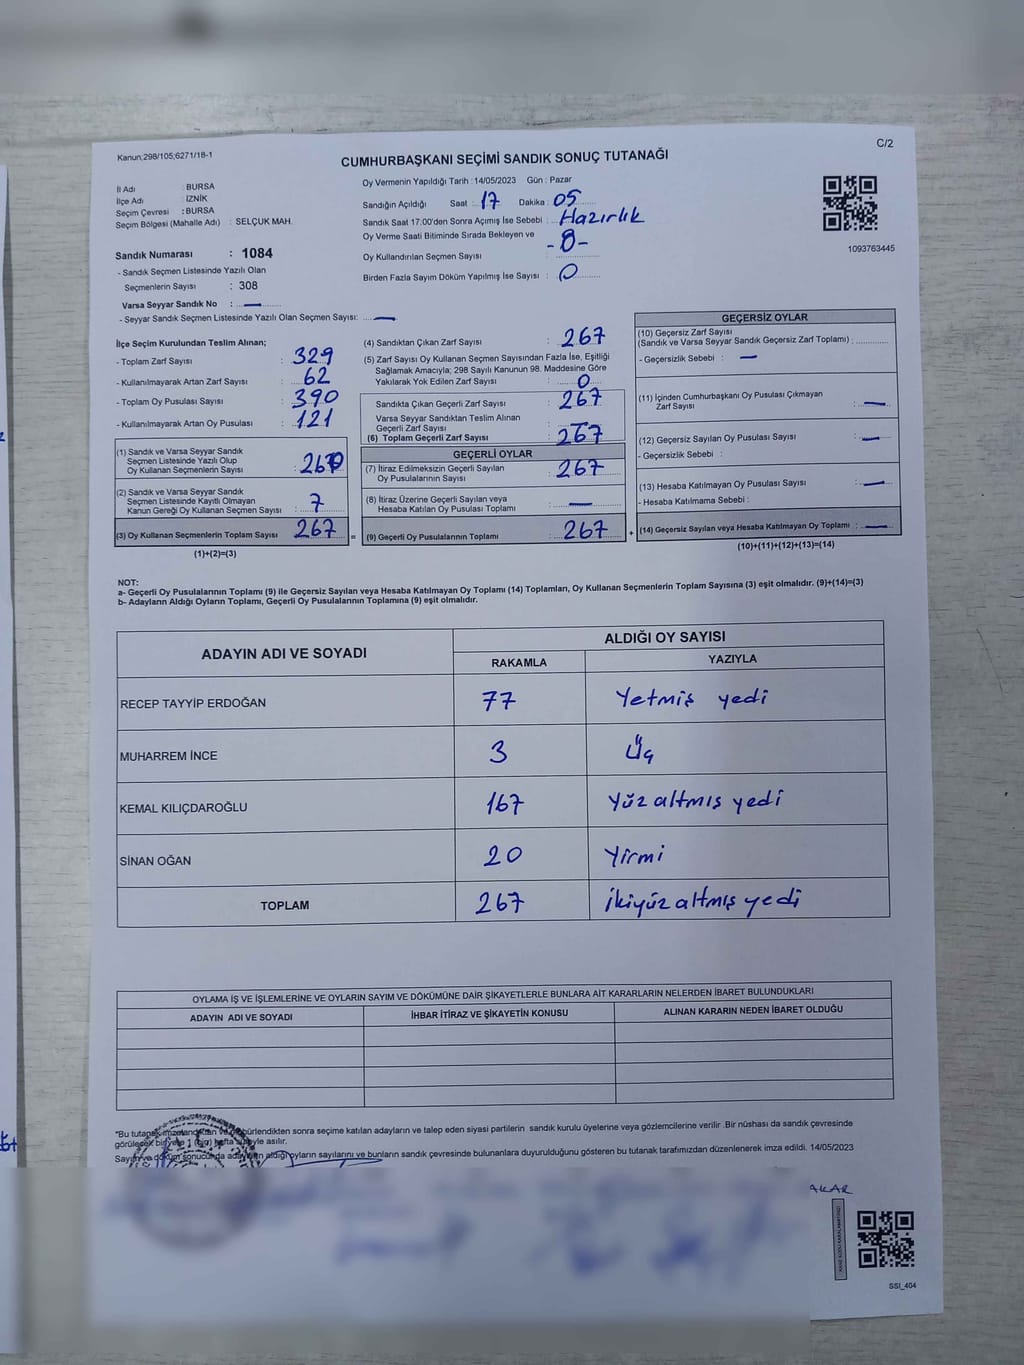 Kanun;298/105;6271/18-1
C/2
CUMHURBAŞKANI SEÇİMİ SANDIK SONUÇ TUTANAĞI
İl Adı : BURSA
İlçe Adı : İZNİK
Seçim Çevresi : BURSA
Seçim Bölgesi (Mahalle Adı) : SELÇUK MAH.
Sandık Numarası : 1084
- Sandık Seçmen Listesinde Yazılı Olan
Seçmenlerin Sayısı : 308
Varsa Seyyar Sandık No : —
- Seyyar Sandık Seçmen Listesinde Yazılı Olan Seçmen Sayısı: —
Oy Vermenin Yapıldığı Tarih : 14/05/2023 Gün : Pazar
Sandığın Açıldığı Saat : 17 Dakika : 05
Sandık Saat 17:00'den Sonra Açımış İse Sebebi : Hazırlık
Oy Verme Saati Bitiminde Sırada Bekleyen ve
Oy Kullandırılan Seçmen Sayısı : -0-
Birden Fazla Sayım Döküm Yapılmış İse Sayısı : 0
1093763445
İlçe Seçim Kurulundan Teslim Alınan;
- Toplam Zarf Sayısı : 329
- Kullanılmayarak Artan Zarf Sayısı : 62
- Toplam Oy Pusulası Sayısı : 390
- Kullanılmayarak Artan Oy Pusulası : 121
(1) Sandık ve Varsa Seyyar Sandık
Seçmen Listesinde Yazılı Olup
Oy Kullanan Seçmenlerin Sayısı : 260
(2) Sandık ve Varsa Seyyar Sandık
Seçmen Listesinde Kayıtlı Olmayan
Kanun Gereği Oy Kullanan Seçmen Sayısı : 7
(3) Oy Kullanan Seçmenlerin Toplam Sayısı : 267 =
(1)+(2)=(3)
(4) Sandıktan Çıkan Zarf Sayısı : 267
(5) Zarf Sayısı Oy Kullanan Seçmen Sayısından Fazla İse, Eşitliği
Sağlamak Amacıyla; 298 Sayılı Kanunun 98. Maddesine Göre
Yakılarak Yok Edilen Zarf Sayısı : 0
Sandıkta Çıkan Geçerli Zarf Sayısı : 267
Varsa Seyyar Sandıktan Teslim Alınan
Geçerli Zarf Sayısı : —
(6) Toplam Geçerli Zarf Sayısı : 267
GEÇERLİ OYLAR
(7) İtiraz Edilmeksizin Geçerli Sayılan
Oy Pusulalarının Sayısı : 267
(8) İtiraz Üzerine Geçerli Sayılan veya
Hesaba Katılan Oy Pusulası Toplamı : —
(9) Geçerli Oy Pusulalarının Toplamı : 267 +
GEÇERSİZ OYLAR
(10) Geçersiz Zarf Sayısı
(Sandık ve Varsa Seyyar Sandık Geçersiz Zarf Toplamı) :
- Geçersizlik Sebebi : —
(11) İçinden Cumhurbaşkanı Oy Pusulası Çıkmayan
Zarf Sayısı : —
(12) Geçersiz Sayılan Oy Pusulası Sayısı : —
- Geçersizlik Sebebi :
(13) Hesaba Katılmayan Oy Pusulası Sayısı : —
- Hesaba Katılmama Sebebi :
(14) Geçersiz Sayılan veya Hesaba Katılmayan Oy Toplamı : —
(10)+(11)+(12)+(13)=(14)
NOT:
a- Geçerli Oy Pusulalarının Toplamı (9) ile Geçersiz Sayılan veya Hesaba Katılmayan Oy Toplamı (14) Toplamları, Oy Kullanan Seçmenlerin Toplam Sayısına (3) eşit olmalıdır. (9)+(14)=(3)
b- Adayların Aldığı Oyların Toplamı, Geçerli Oy Pusulalarının Toplamına (9) eşit olmalıdır.
ADAYIN ADI VE SOYADI
ALDIĞI OY SAYISI
RAKAMLA YAZIYLA
RECEP TAYYİP ERDOĞAN 77 Yetmiş yedi
MUHARREM İNCE 3 Üç
KEMAL KILIÇDAROĞLU 167 Yüz altmış yedi
SİNAN OĞAN 20 Yirmi
TOPLAM 267 İkiyüz altmış yedi
OYLAMA İŞ VE İŞLEMLERİNE VE OYLARIN SAYIM VE DÖKÜMÜNE DAİR ŞİKAYETLERLE BUNLARA AİT KARARLARIN NELERDEN İBARET BULUNDUKLARI
ADAYIN ADI VE SOYADI İHBAR İTİRAZ VE ŞİKAYETİN KONUSU ALINAN KARARIN NEDEN İBARET OLDUĞU
"Bu tutanak imzalandıktan ve mühürlendikten sonra seçime katılan adayların ve talep eden siyasi partilerin sandık kurulu üyelerine veya gözlemcilerine verilir .Bir nüshası da sandık çevresinde
görülecek bir yere 1 (bir) hafta süreyle asılır.
Sayım ve döküm sonucunda adayların aldığı oyların sayılarını ve bunların sandık çevresinde bulunanlara duyurulduğunu gösteren bu tutanak tarafımızdan düzenlenerek imza edildi. 14/05/2023
AKAR
SSI_404